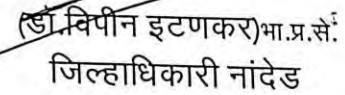 (डॉ.विपीन इटणकर)भा.प्र.से.
जिल्हाधिकारी नांदेड